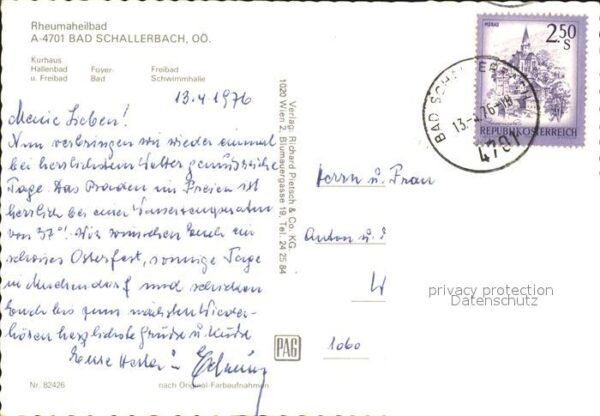 Rheumaheilbad
A-4701 BAD SCHALLERBACH, OÖ.
Kurhaus
Hallenbad Foyer- Freibad
u. Freibad Bad Schwimmhalle
13.4.1976
Meine Lieben!
Nun verbringen wir wieder einmal
bei herrlichstem Wetter genußreiche
Tage. Das Baden im Freien ist
herrlich bei einer Wassertemperatur
von 37°! Wir wünschen Euch ein
schönes Osterfest, sonnige Tage
in und schicken
Euch bis zum nächsten Wieder-
hören herzlichste Grüße u. Küsse
Eure u.
Nr. 82426
nach Original-Farbaufnahmen
Verlag: Richard Pietsch & Co. KG.
1020 Wien 2, Blumauergasse 19, Tel. 24 25 84
PAG
MURAU
2.50
S
REPUBLIK ÖSTERREICH
BAD SCHALLERBACH
13.-4.76-18
4701
Herrn u. Frau
Anton u.
W
1060
privacy protection
Datenschutz